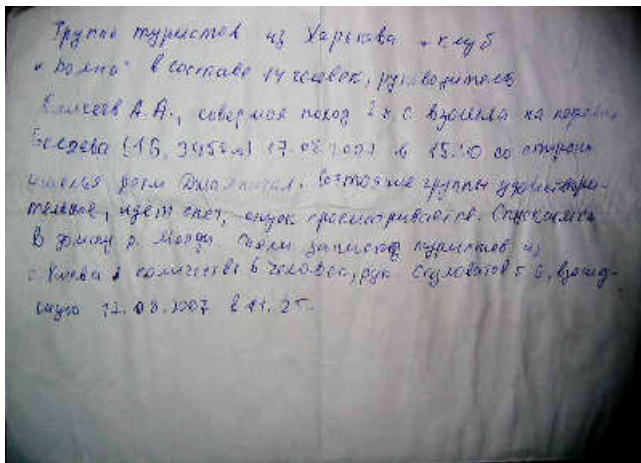 Группа туристов из Харькова т. клуб
в составе 14 человек, руководитель
Елисеев А.А., совершая поход 2 к.с взошла на перевал
Беляева (1Б, 17.08.2007 в 15.20 со стороны
ущелья реки Состояние группы удовлетвори-
тельное, идет снег, спуск просматривается. Спускаемся
в долину р. Сняли записку туристов из
г. Киева в количестве 6 человек, рук. взошед-
шую 17.08.2007 в 11.25.